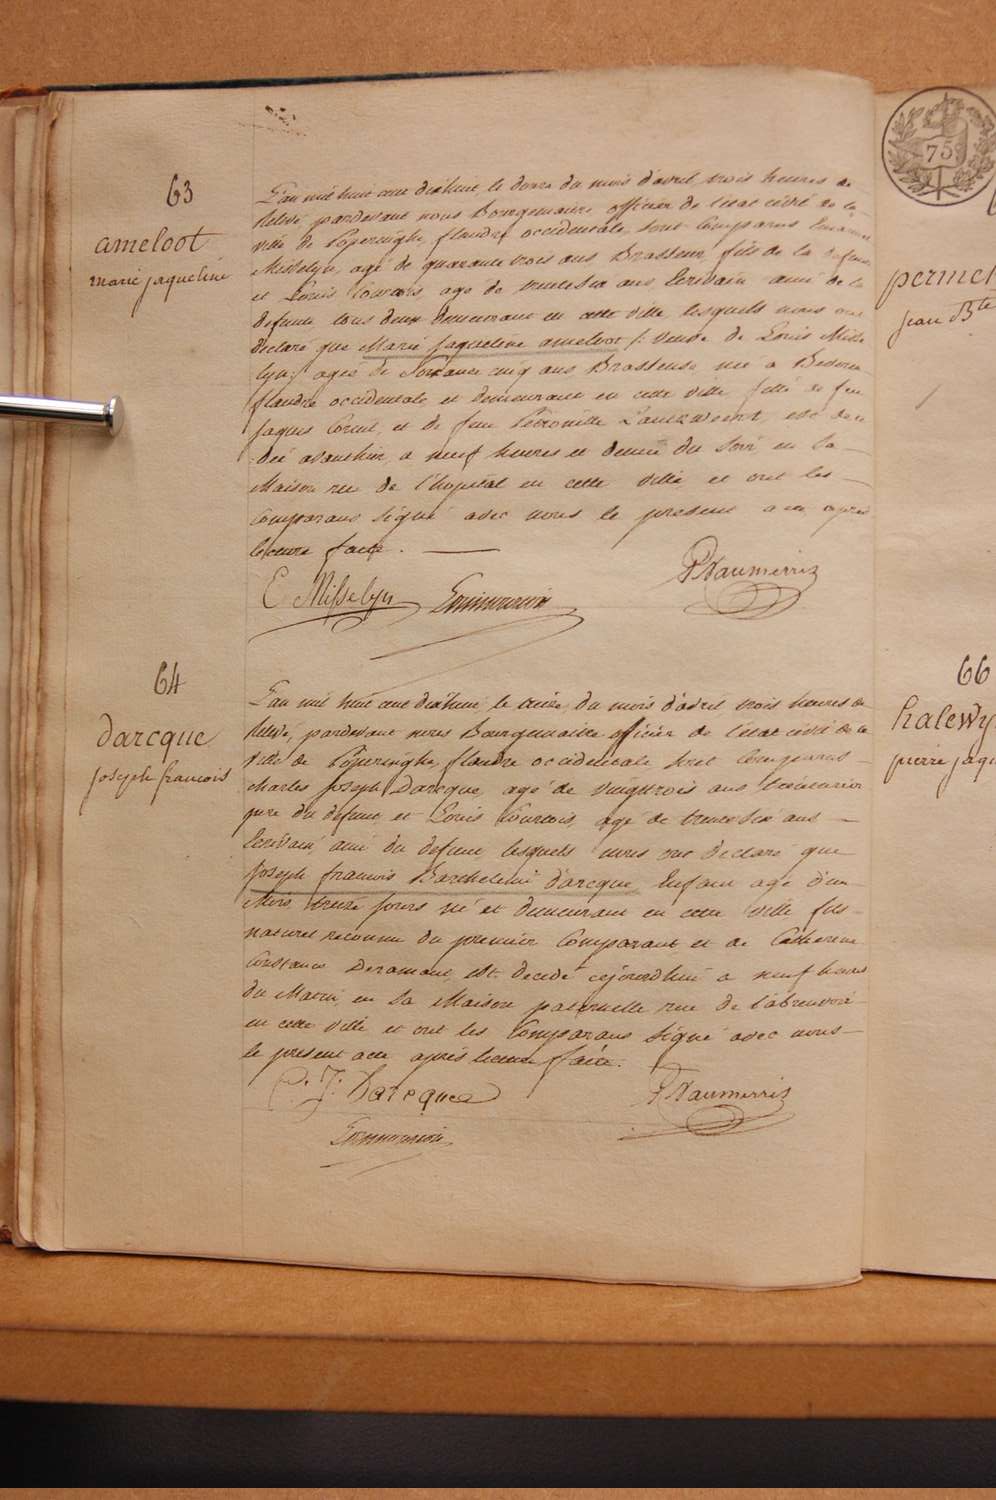 63
ameloot
marie jaqueline
L'an mil huit cent dixhuit le douze du mois d'avril, trois heures de
relevé, pardevant nous Bourgemaitre, officier de l'état civil de la
ville de Poperinghe, flandre occidentale, sont Comparus
Misselyn, agé de quarante trois ans Brasseur, fils de la defunte
et Louis Courtois, agé de trente six ans Ecrivain ami de la
defunte, tous deux demeurant en cette ville, lesquels nous ont
declaré que Marie Jaqueline ameloot /: veuve de Louis Misse
lyn :/ agée de Soixante cinq ans Brasseuse née à
flandre occidentale et demeurant en cette ville, fille de feu
Jaques Corneil, et de feue Petronille est dece
deé avanthier, a neuf heures et demie du soir, en sa
Maison rue de l'hopital en cette ville et ont les
Comparans Signé avec nous le present acte, après
lecture faite.
E Misselyn
64
darcque
joseph francois
L'an mil huit cent dixhuit, le treize, du mois d'avril, trois heures de
relevé, pardevant nous Bourgemaitre officier de l'état civil de la
ville de Poperinghe, flandre occidentale sont Comparus
charles Joseph Darcque, agé de vingttrois ans
pere du defunt, et Louis Courtois, agé de trente Six ans
Ecrivain, ami du defunt, lesquels nous ont declaré que
Joseph francois Barthelemi darcque, Enfant agé d'un
Mois treize jours né et demeurant en cette ville fils
naturel reconnu du premier Comparant et de Catherine
Constance Deramaut, est decedé cejourdhui a neuf heures
du Matin, en sa Maison paternelle rue de l'abreuvoir
en cette ville et ont les Comparans Signé avec nous
le present acte après lecture faite.
C. J. Darcque
75
permek
jean Bte
66
halewy
pierre jaq